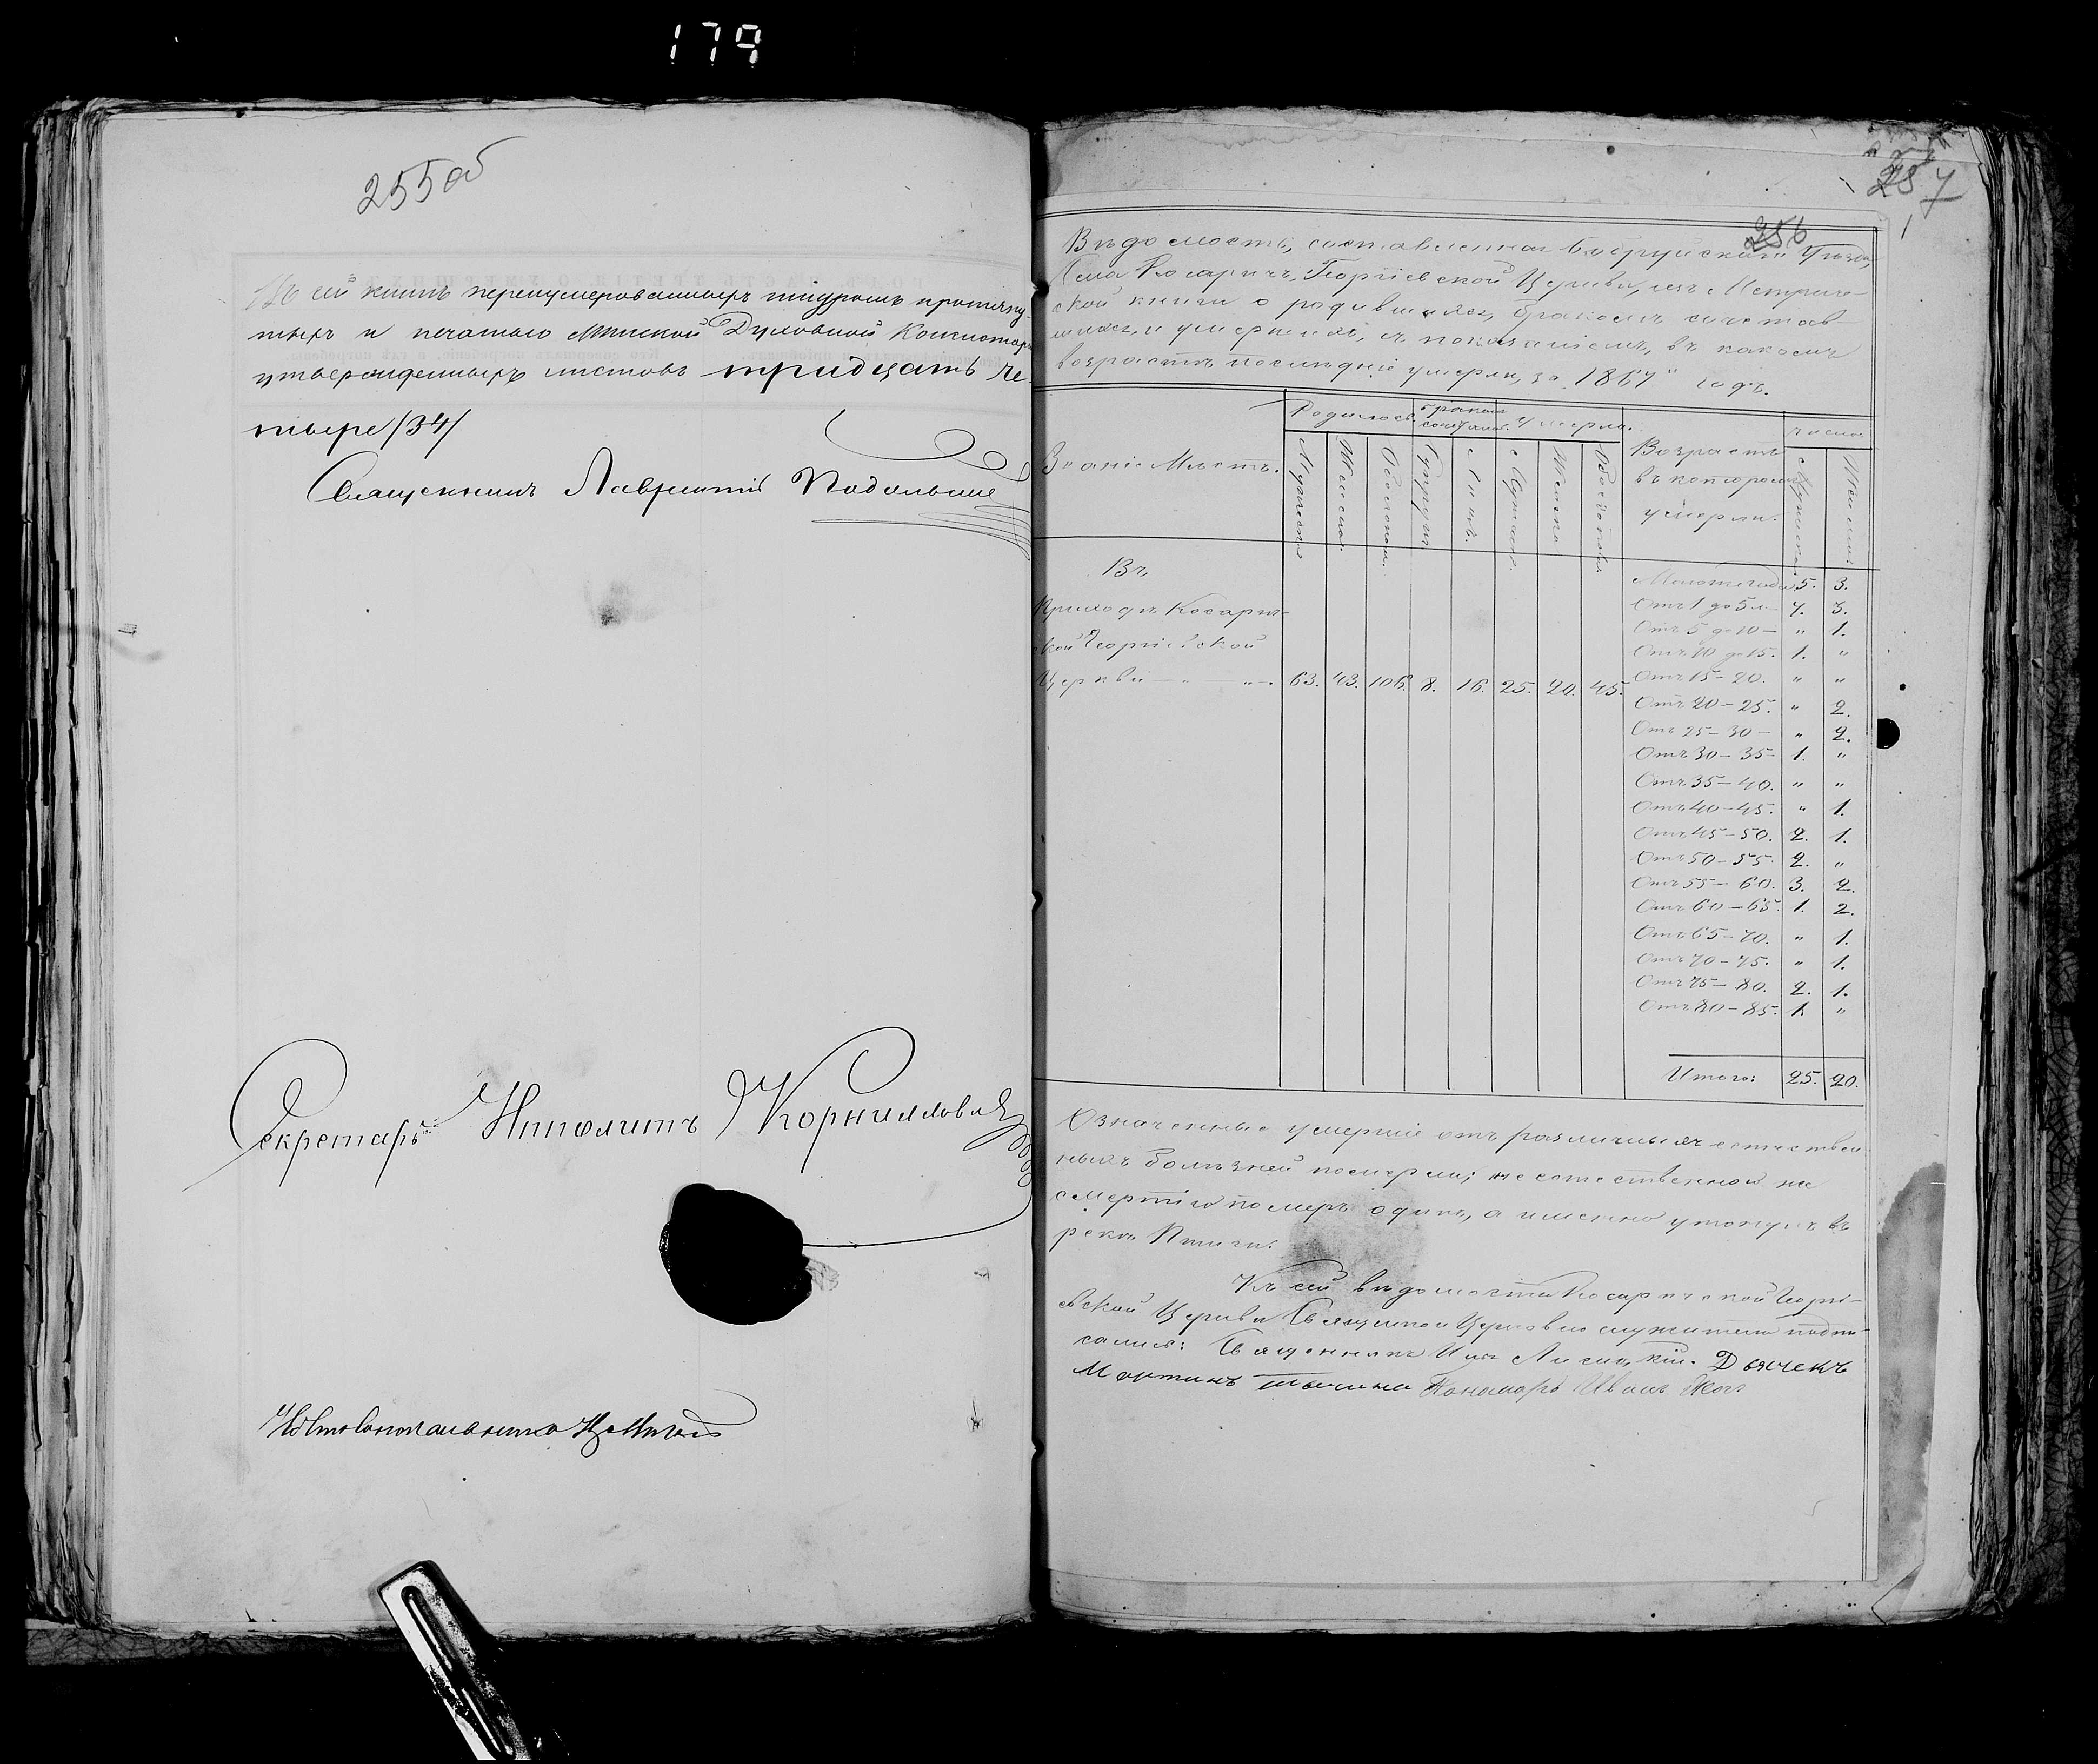 179
255 об
Въ сей книгѣ перенумерованныхъ шнуромъ протянутыхъ
и печатью Минской Духовной Консисторіи
утвержденныхъ листовъ тридцать че-
тыре /34/
Священникъ Лаврентій
Секретарь Ипполитъ Корниллови
257
256
Вѣдомость, составленная Бобруйскаго Уѣзда,
Села Косаричъ, Георгіевской Церкви, изъ Метриче-
ской книги о родившихся, бракомъ сочетав-
шихся и умершихъ, съ показаніемъ, въ какомъ
возрастѣ послѣдніе умерли, за 1867 годъ.
Званіе Мѣстъ.
Родилось.
Бракомъ сочетано.
Умерло.
Возрастъ
въ которомъ
умерли.
число
Мужеска
Женска
Обоего пола
Супруги
Лицъ.
Мужска.
Женска
Обоего пола
Мужеска
Женска
Въ
Приходѣ Косарич-
ской Георгіевской
Церкви — „ — „ — 63. 43. 106. 8. 16. 25. 20. 45.
Моложе года 5. 3.
Отъ 1 до 5 л— 7. 3.
Отъ 5 до 10— „ 1.
Отъ 10 до 15. 1. „
Отъ 15—20. „ „
Отъ 20—25. „ 2.
Отъ 25—30— „ 2.
Отъ 30—35— 1. „
Отъ 35—40. „ „
Отъ 40—45. „ 1.
Отъ 45—50. 2. 1.
Отъ 50—55. 2. „
Отъ 55—60. 3. 2.
Отъ 60—65. 1. 2.
Отъ 65—70. „ 1.
Отъ 70—75. „ 1.
Отъ 75—80. 2. 1.
Отъ 80—85. 1. „
Итого: 25. 20.
Означенные умершіе отъ различныхъ естествен-
ныхъ болѣзней померли; не естественною же
смертію померъ одинъ, а именно утонулъ въ
рекѣ Птичи.
Къ сей вѣдомости Косаричской Георгі-
евской Церкви Священно и Церковно служители подпи-
сались: Священникъ Илія Лисицкій. Дьячекъ
Мартинъ Тычина Пономарь Иванъ